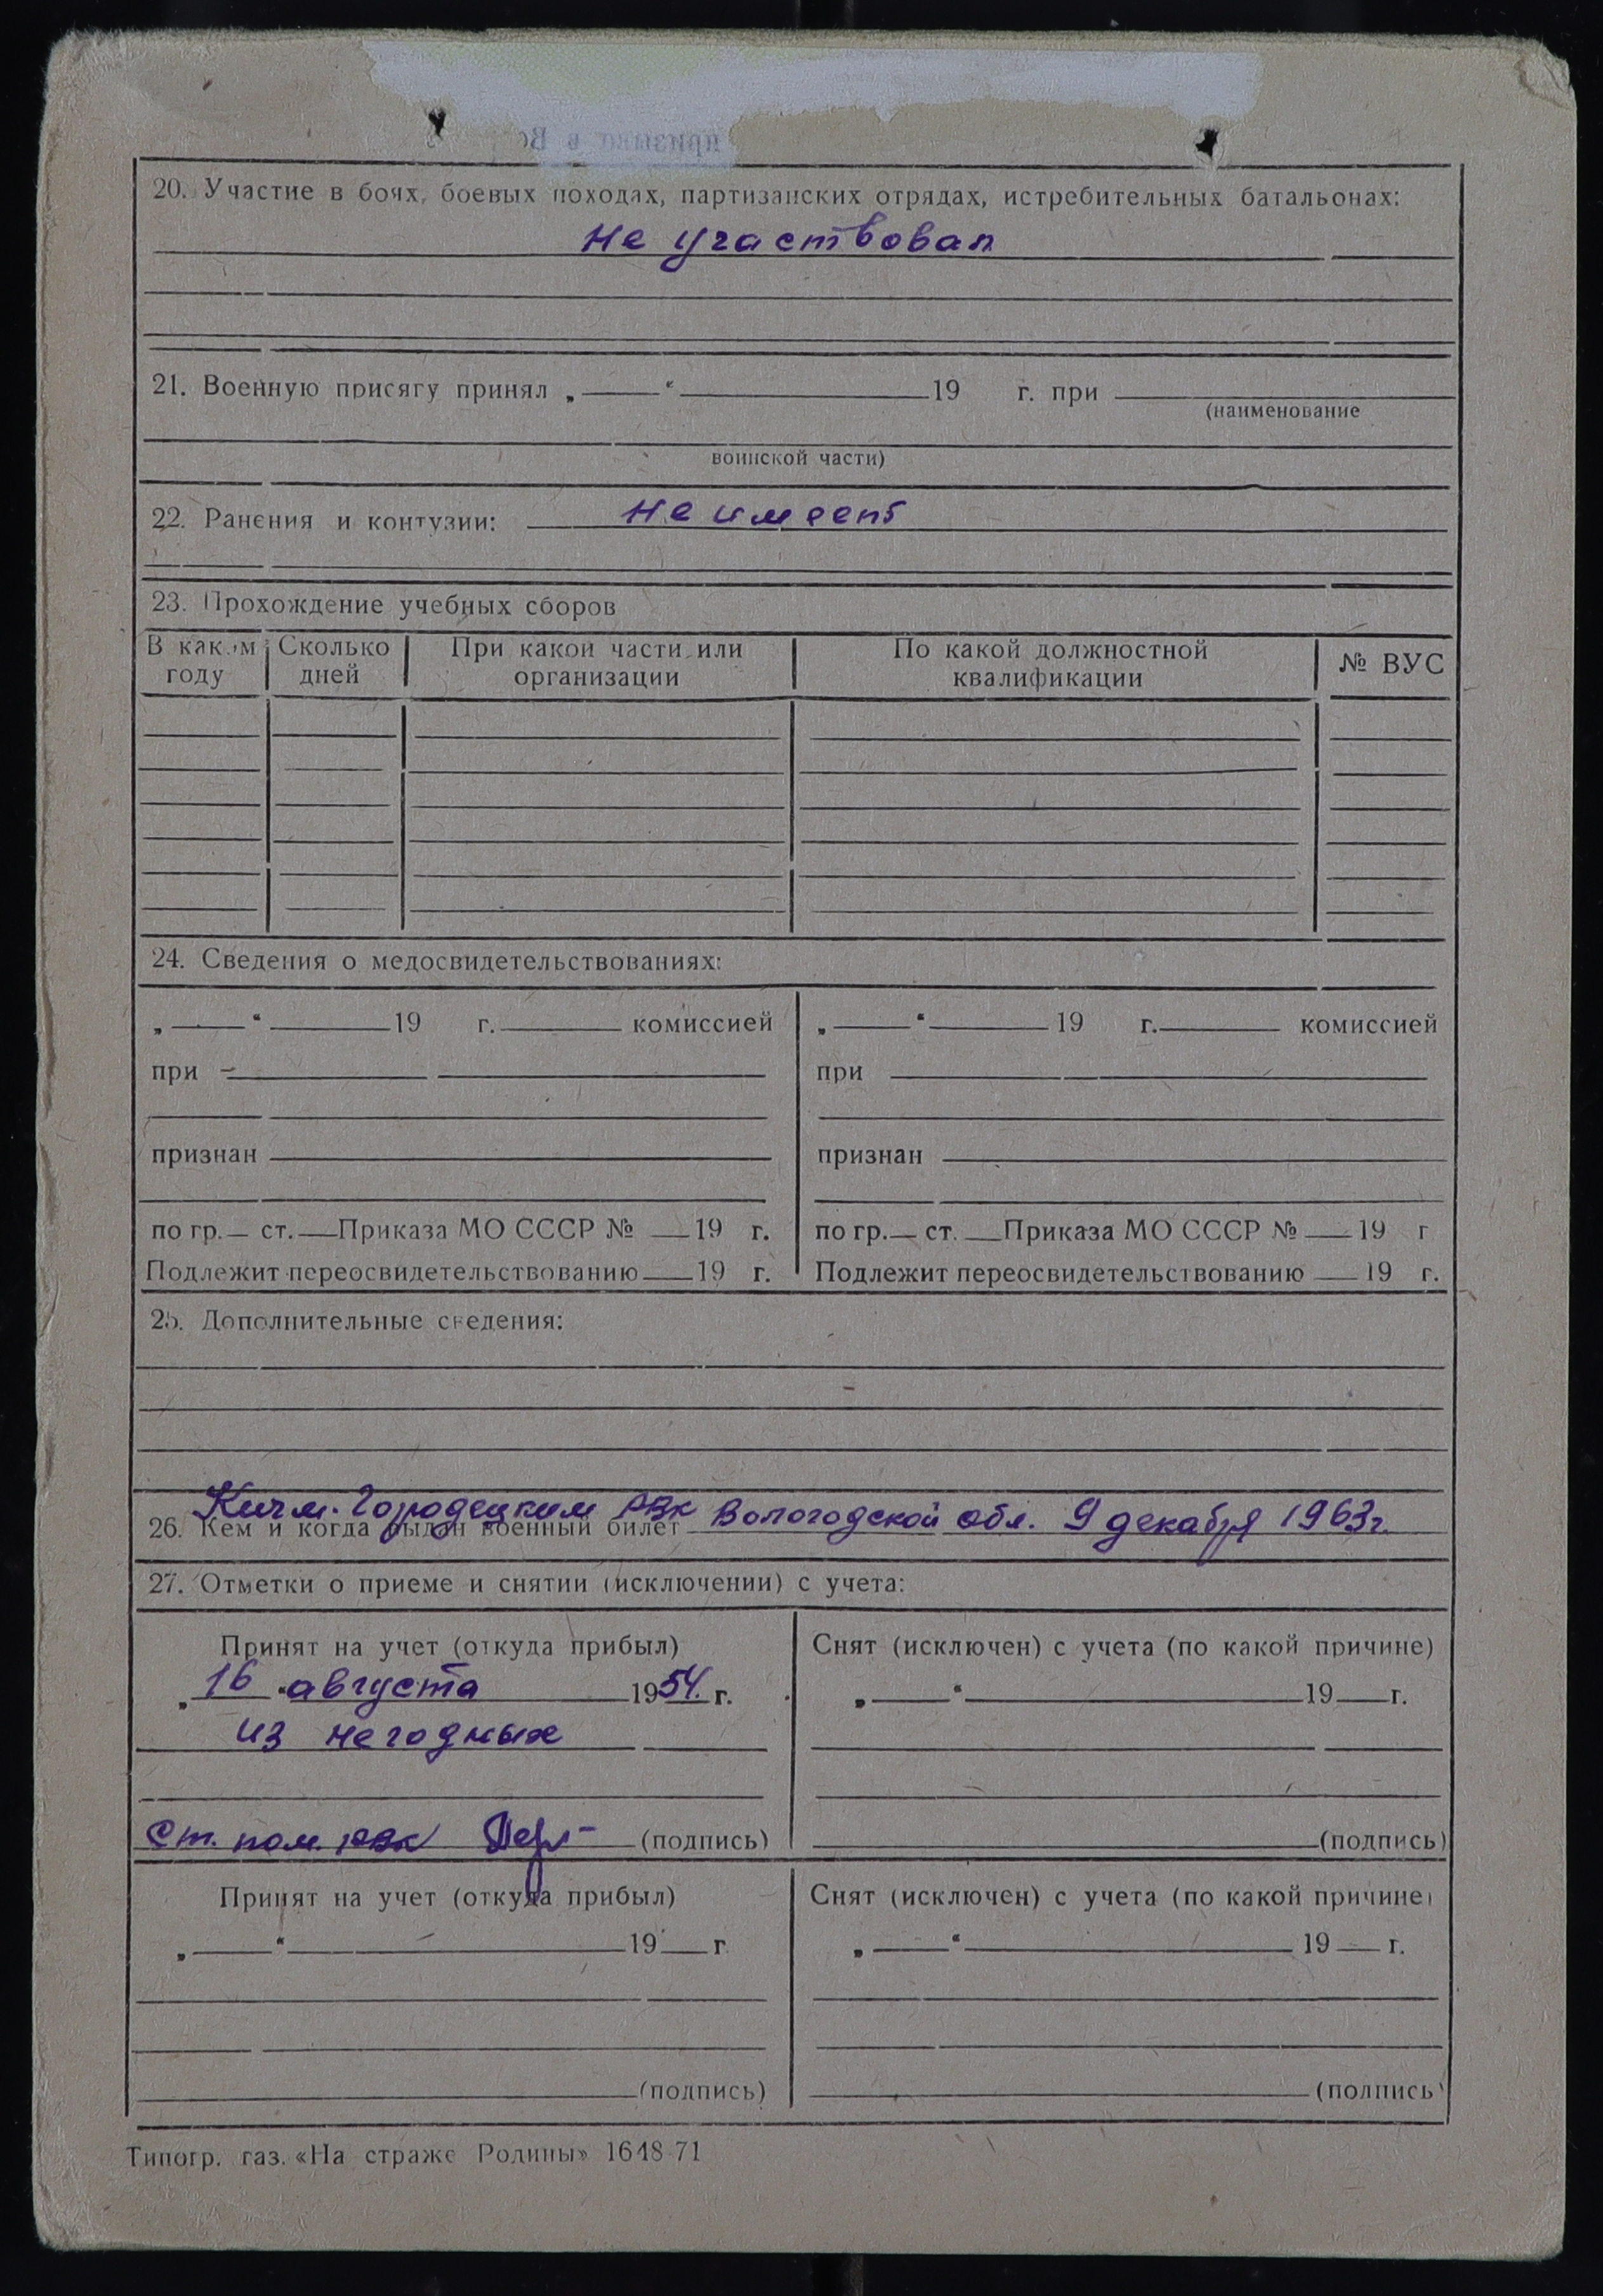 призыва в Во
20. Участие в боях, боевых походах, партизанских отрядах, истребительных батальонах:
не участвовал
21. Военную присягу принял „ “ 19 г. при
(наименование
воинской части)
22. Ранения и контузии: не имеет
23. Прохождение учебных сборов
В каком году Сколько дней При какой части или организации По какой должностной квалификации № ВУС
24. Сведения о медосвидетельствованиях:
„ “ 19 г. комиссией „ “ 19 г. комиссией
при при
признан признан
по гр. ст. Приказа МО СССР № 19 г. по гр. ст. Приказа МО СССР № 19 г
Подлежит переосвидетельствованию 19 г. Подлежит переосвидетельствованию 19 г.
25. Дополнительные сведения:
Кичм. Городецким РВК Вологодской обл. 9 декабря 1963г.
26. Кем и когда выдан военный билет
27. Отметки о приеме и снятии (исключении) с учета:
Принят на учет (откуда прибыл) Снят (исключен) с учета (по какой причине)
„ 16 “ августа 1954. г. „ “ 19 г.
из негодных
Ст. пом. РВК (подпись) (подпись)
Принят на учет (откуда прибыл) Снят (исключен) с учета (по какой причине)
„ “ 19 г „ “ 19 г.
(подпись) (подпись)
Типогр. газ. «На страже Родины» 1648-71